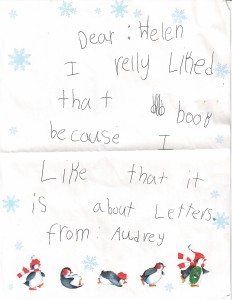 Dear: Helen
I relly Liked
that book
because I
Like that it
is about Letters.
from: Audrey